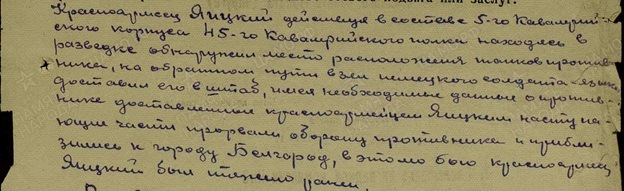 Красноармеец Яицкий действуя в составе 5-го Кавалерий-
ского корпуса 45-го Кавалерийского полка находясь в
разведке обнаружил место расположения танков против-
ника, на обратном пути взял немецкого солдата-языка
доставил его в штаб, имея необходимые данные о против-
нике доставленные красноармейцем Яицким наступа-
ющие части прорвали оборону противника и прибли-
зились к городу Белгород, в этом бою красноармеец
Яицкий был тяжело ранен.